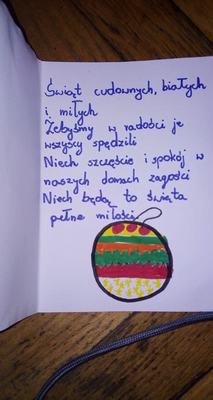 Świąt cudownych, białych
i miłych
Żebyśmy w radości je
wszyscy spędzili
Niech szczęście i spokój w
naszych domach zagości
Niech będą to święta
pełne miłości